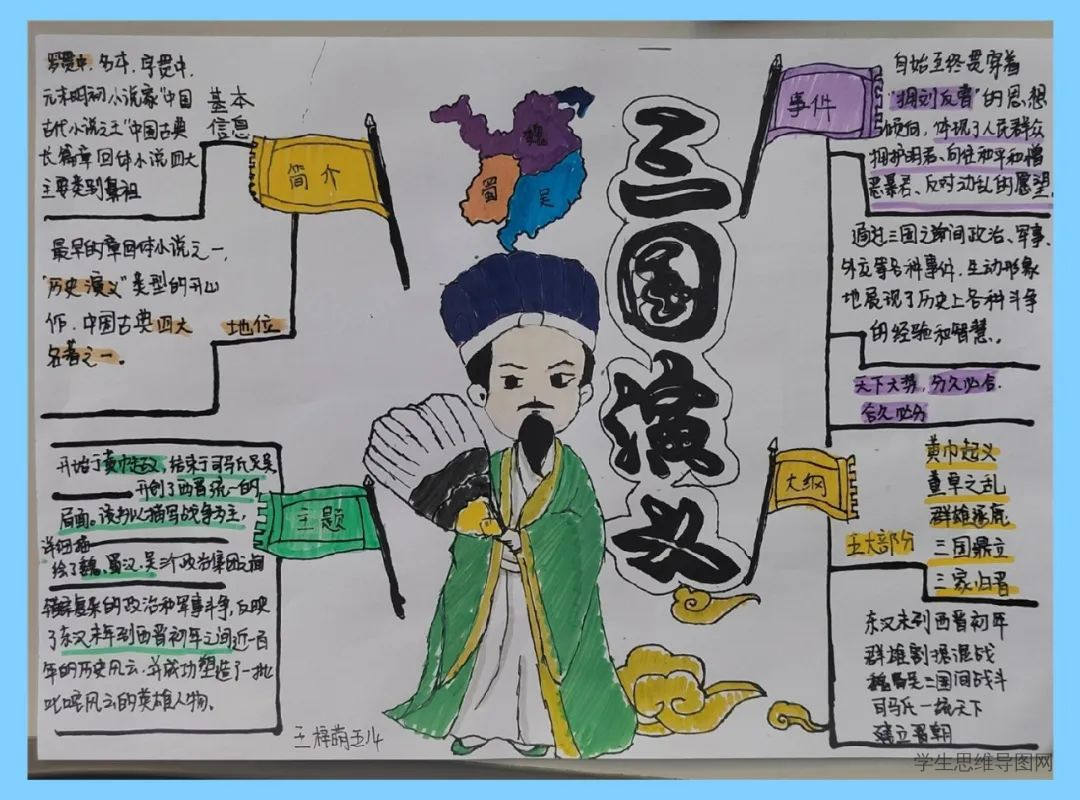 三国演义
魏
蜀
吴
简介
基本
信息
罗贯中,名本,字贯中,
元末明初小说家"中国
古代小说之王"中国古典
长篇章回体小说四大
主要类型鼻祖
地位
最早的章回体小说之一,
"历史演义"类型的开山
作.中国古典四大
名著之一。
主题
开始于黄巾起义,结束于司马氏灭吴
开创了西晋统一的
局面。该书以描写战争为主,
详细描
绘了魏、蜀汉、吴三个政治集团之间
错综复杂的政治和军事斗争,反映
了东汉末年到西晋初年之间近一百
年的历史风云,并成功塑造了一批
叱咤风云的英雄人物。
事件
自始至终贯穿着
"拥刘反曹"的思想
倾向,体现了人民群众
拥护明君、向往和平和憎
恶暴君、反对动乱的愿望.
通过三国之间政治、军事、
外交等各种事件,生动形象
地展现了历史上各种斗争
的经验和智慧。
天下大势,分久必合,
合久必分
大纲
五大部分
黄巾起义
董卓之乱
群雄逐鹿
三国鼎立
三家归晋
东汉末到西晋初年
群雄割据混战
魏蜀吴三国间战斗
司马氏一统天下
建立晋朝
学生思维导图网